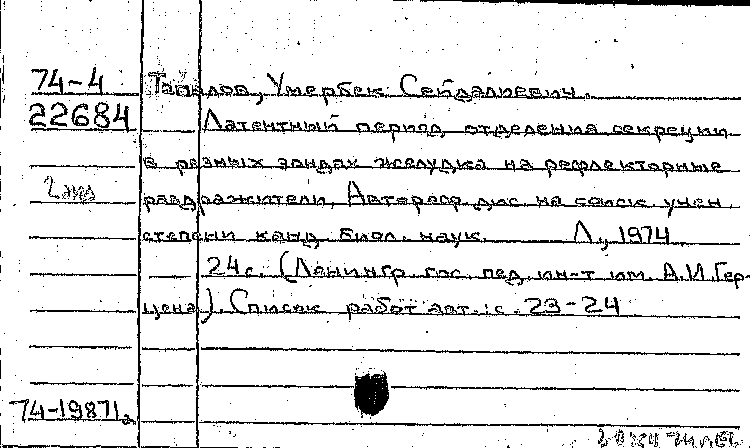 74-4 Тапалов, Умербек Сейдалиевич.
22684 Латентный период отделения секреции
в разных зондах желудка на рефлекторные
2 экз раздражители. Автореф. дис. на соиск. учен.
степени канд. биол. наук. Л., 1974
24 с. (Ленингр. гос. пед. ин-т им. А.И. Гер-
цена). Список работ авт.: с. 23-24
74-19871а